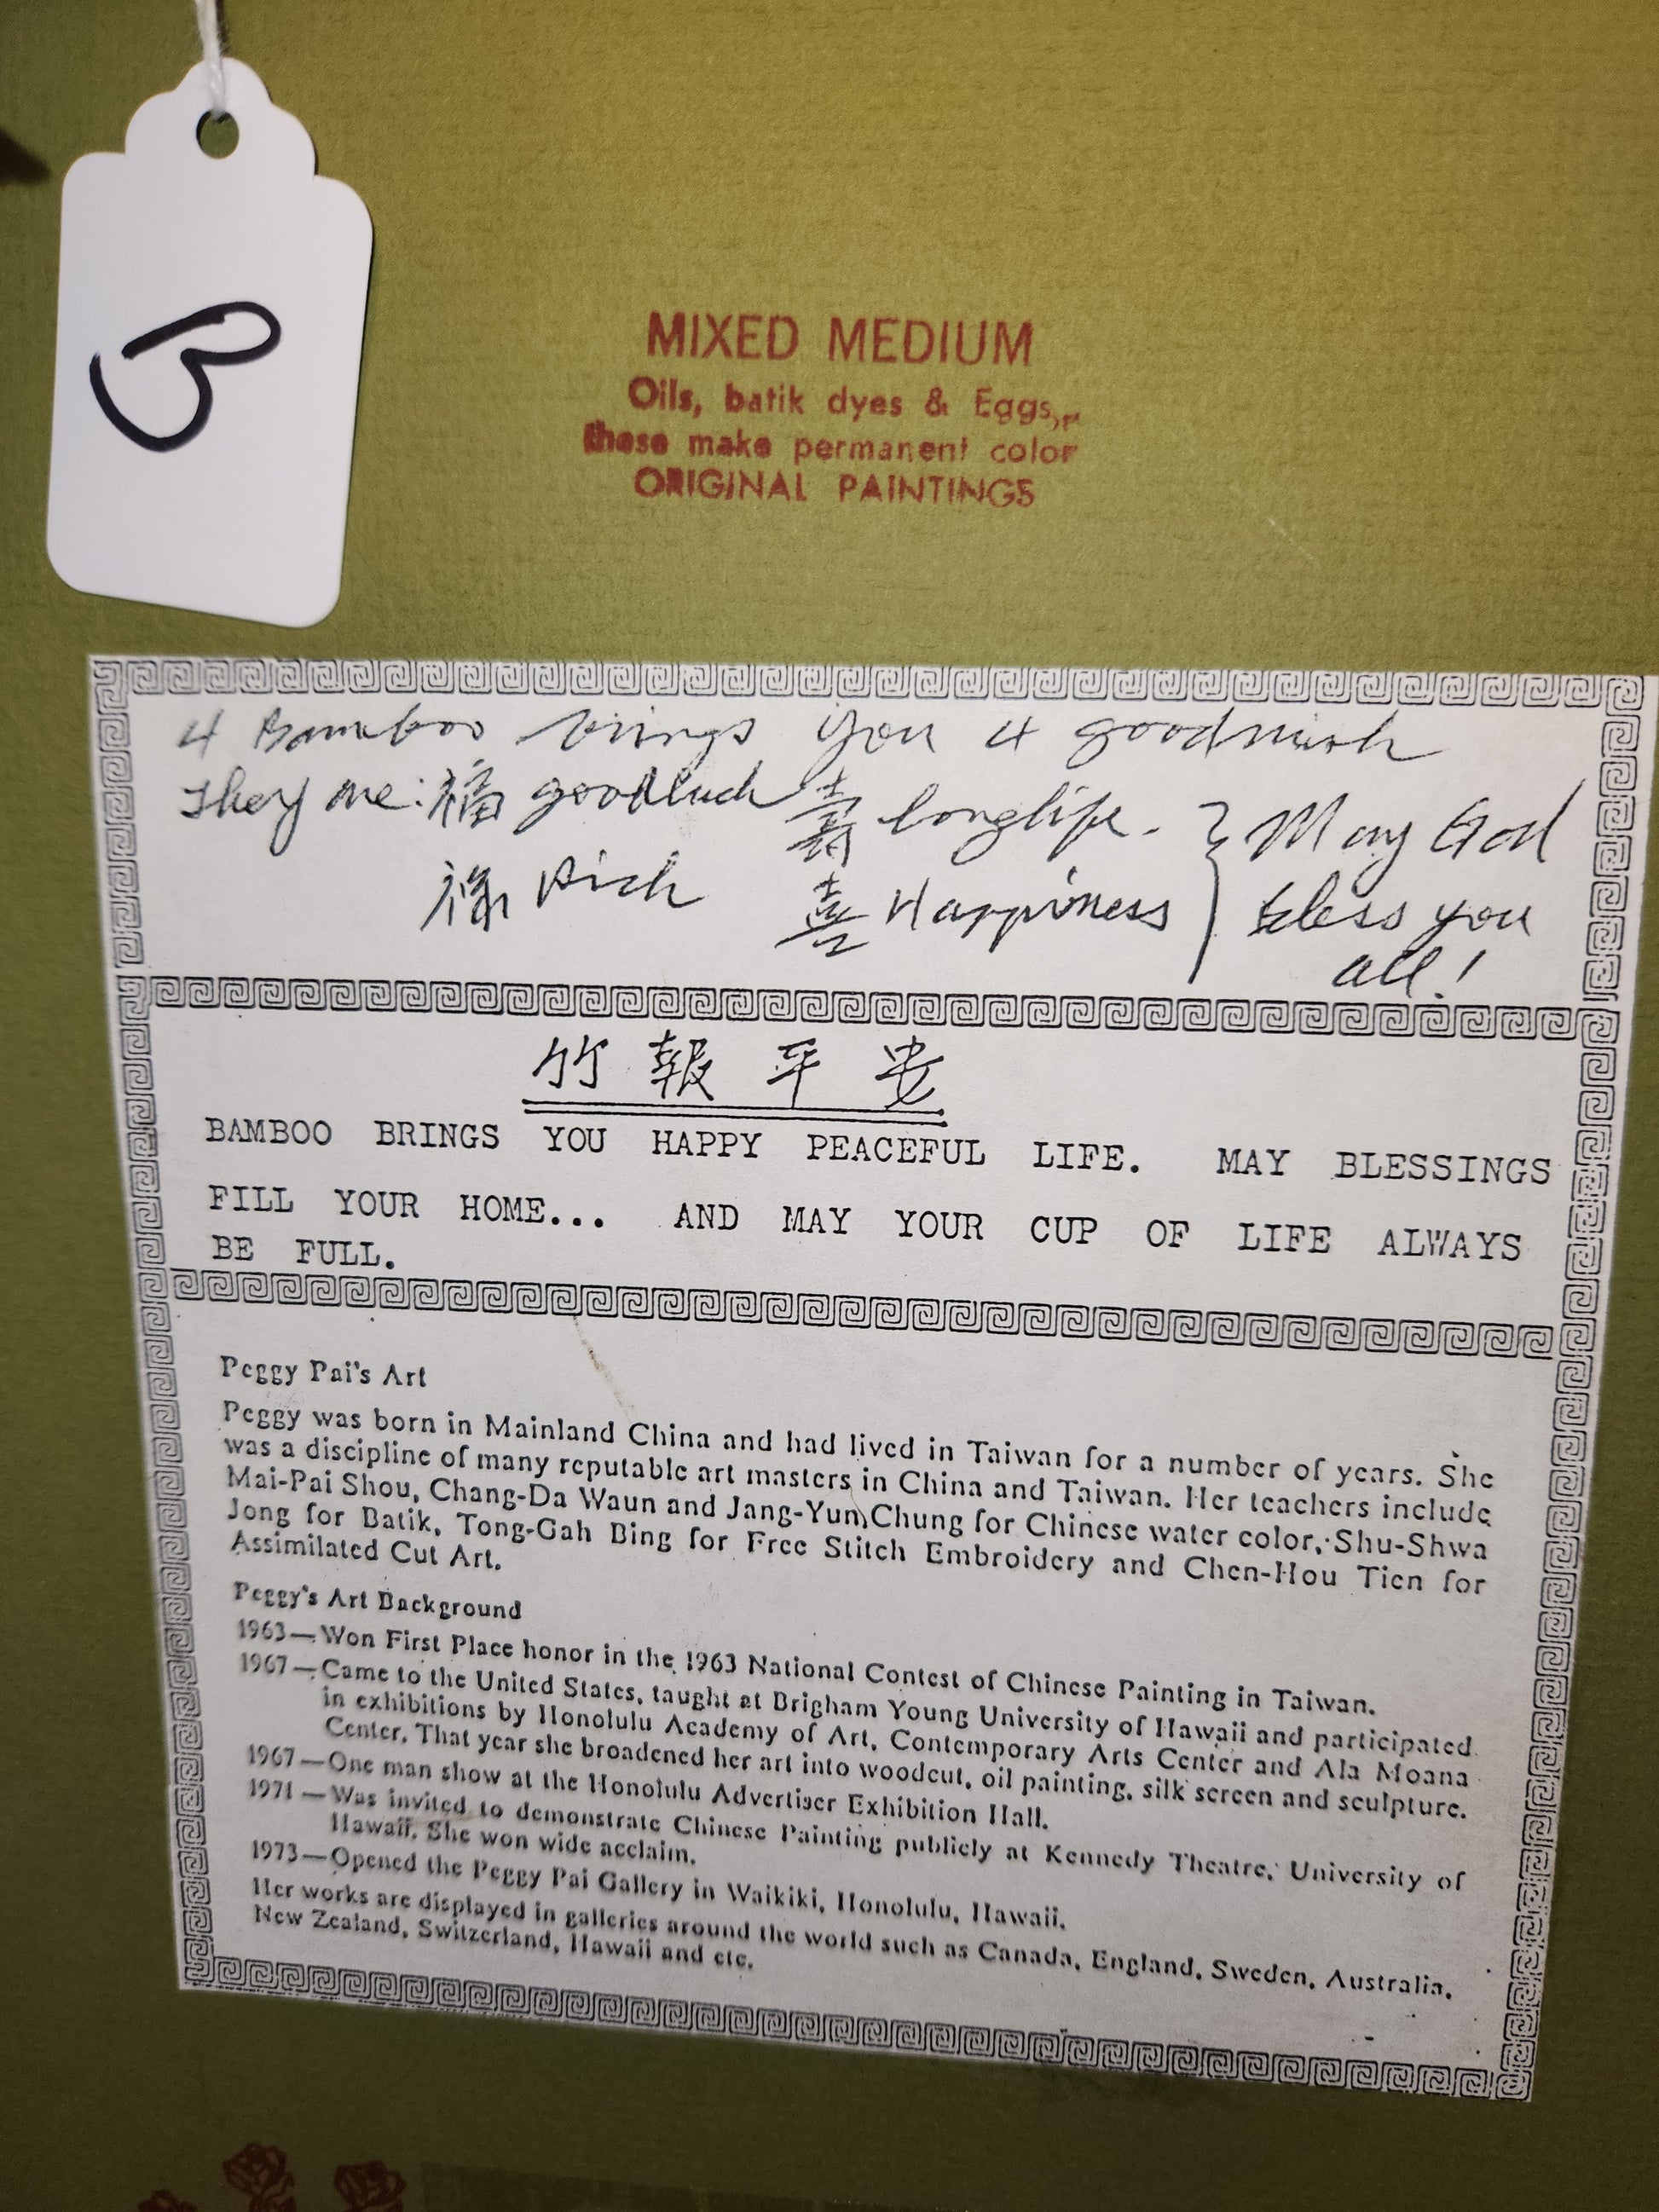 B
MIXED MEDIUM
Oils, batik dyes & Eggs,
these make permanent color
ORIGINAL PAINTINGS
4 Bamboo brings you 4 goodwish
They are: 福 goodluck 壽 longlife. } May God
祿 Rich 喜 Happiness bless you
all!
竹報平安
BAMBOO BRINGS YOU HAPPY PEACEFUL LIFE. MAY BLESSINGS
FILL YOUR HOME... AND MAY YOUR CUP OF LIFE ALWAYS
BE FULL.
Peggy Pai's Art
Peggy was born in Mainland China and had lived in Taiwan for a number of years. She
was a discipline of many reputable art masters in China and Taiwan. Her teachers include
Mai-Pai Shou, Chang-Da Waun and Jang-Yun Chung for Chinese water color, Shu-Shwa
Jong for Batik, Tong-Gah Bing for Free Stitch Embroidery and Chen-Hou Tien for
Assimilated Cut Art.
Peggy's Art Background
1963—Won First Place honor in the 1963 National Contest of Chinese Painting in Taiwan.
1967—Came to the United States, taught at Brigham Young University of Hawaii and participated
in exhibitions by Honolulu Academy of Art, Contemporary Arts Center and Ala Moana
Center. That year she broadened her art into woodcut, oil painting, silk screen and sculpture.
1967—One man show at the Honolulu Advertiser Exhibition Hall.
1971—Was invited to demonstrate Chinese Painting publicly at Kennedy Theatre, University of
Hawaii. She won wide acclaim.
1973—Opened the Peggy Pai Gallery in Waikiki, Honolulu, Hawaii.
Her works are displayed in galleries around the world such as Canada, England, Sweden, Australia,
New Zealand, Switzerland, Hawaii and etc.